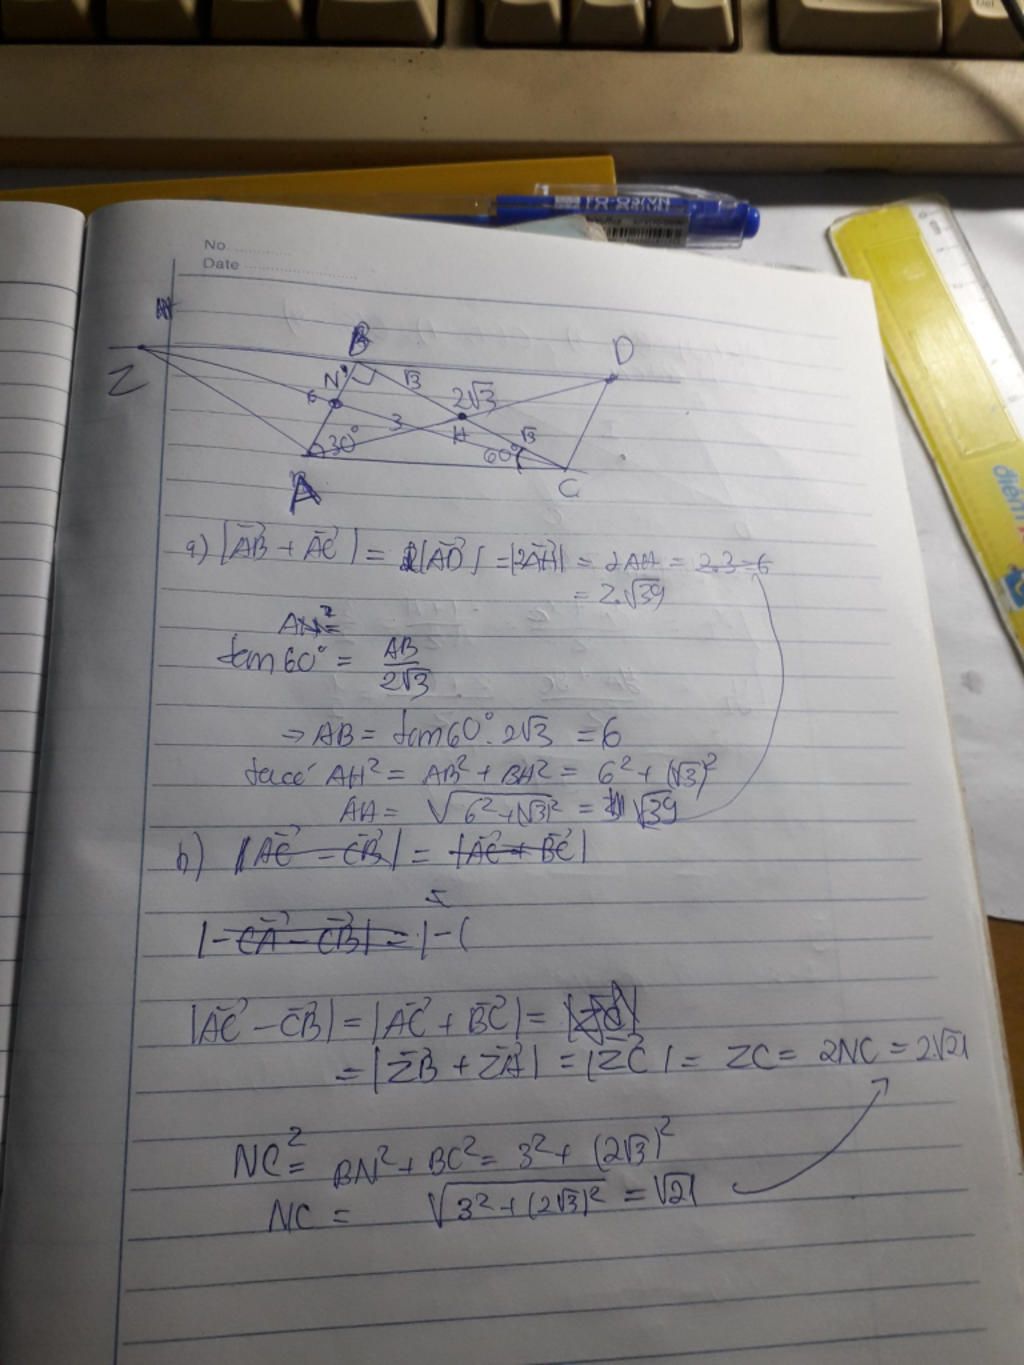 No
Date
Z
B
D
N
6
√3
2√3
3
30°
H
√3
60°
A
C
a) |AB→ + AC→| = |AD→| = |2AH→| = 2AH = 2.3=6
= 2.√39
AH²=
tan60° = AB/2√3
⇒ AB = tan60°. 2√3 = 6
AH² = AB² + BH² = 6² + (√3)²
AH = √(6²+(√3)²) = √39
b) |AC→ - CB→| = |AC→ + BC→|
|-CA→ - CB→| = |-(
|AC→ - CB→| = |AC→ + BC→| =
= |ZB→ + ZA→| = |ZC→| = ZC = 2NC = 2.√21
NC² = BN² + BC² = 3² + (2√3)²
NC = √(3²+(2√3)²) = √21